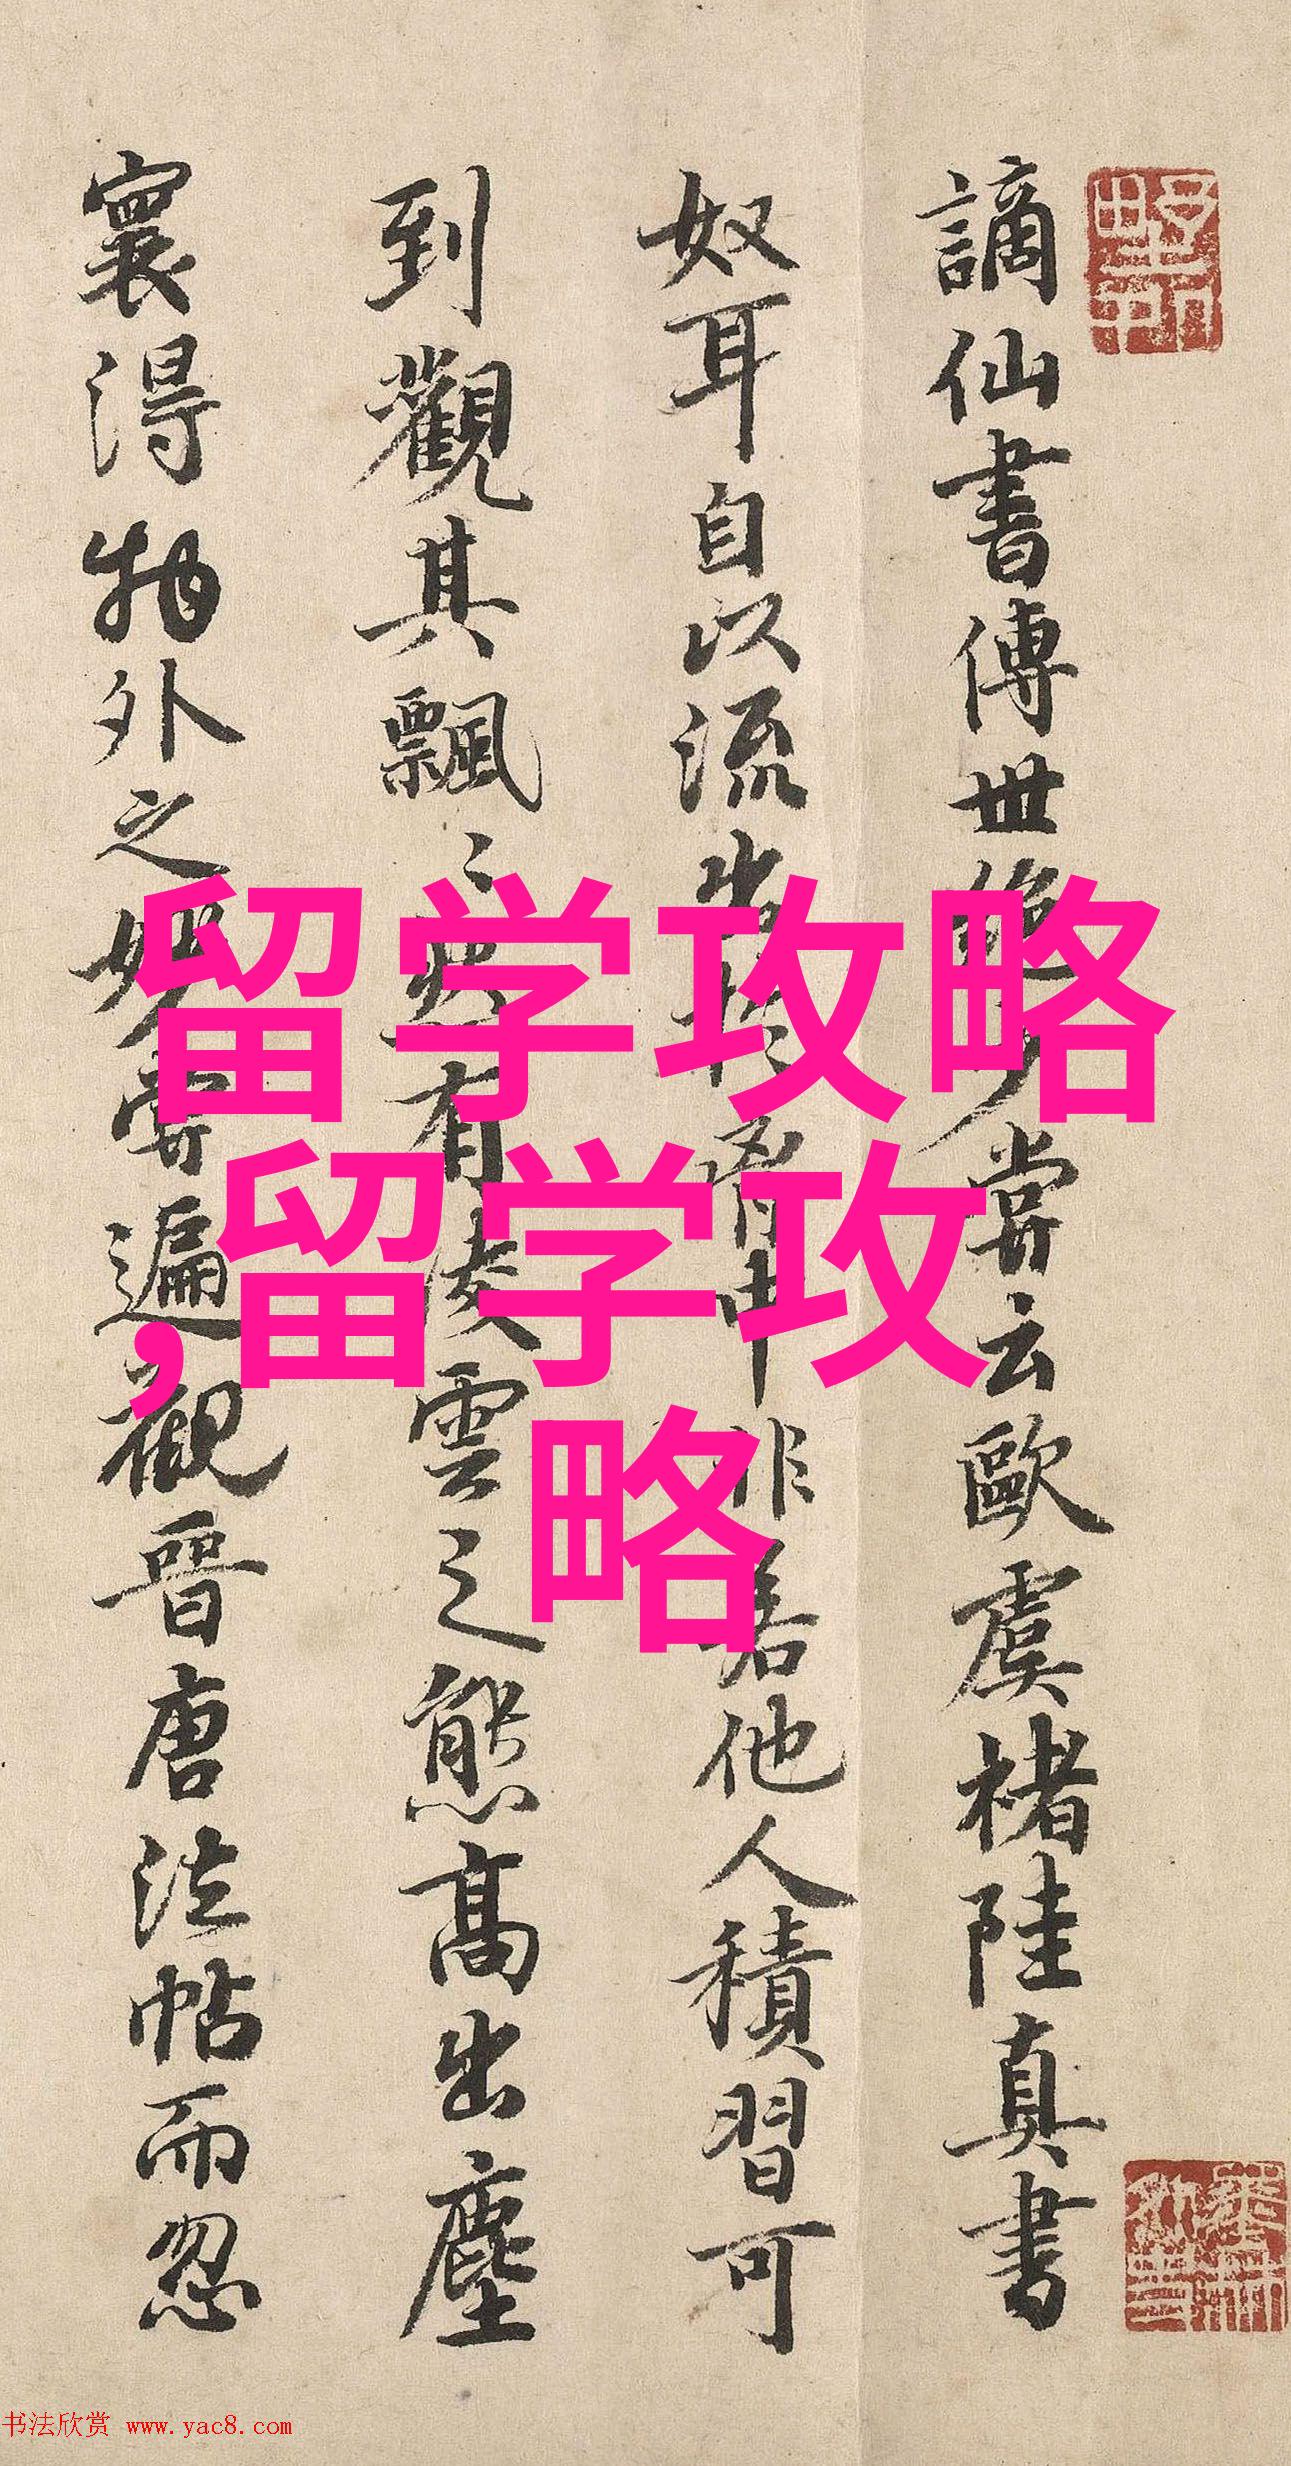 謫仙書傳世絶少嘗云歐虞褚陸真書
奴耳自以流出於胷中非若他人積習可
到觀其飄〻然有凌雲之態高出塵
寰得物外之妙嘗遍觀晉唐法帖而忽
留学攻略
,留学攻
略
书法欣赏 www.yac8.com